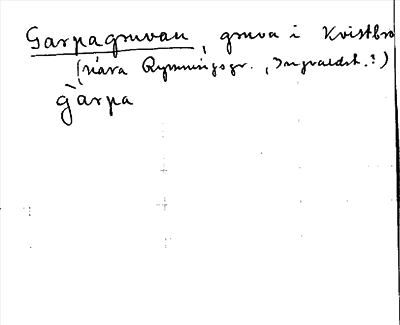 Garpagruvan, gruva i Kvistbro
(nära Rymningsgr., Ingvaldst.?)
gàrpa